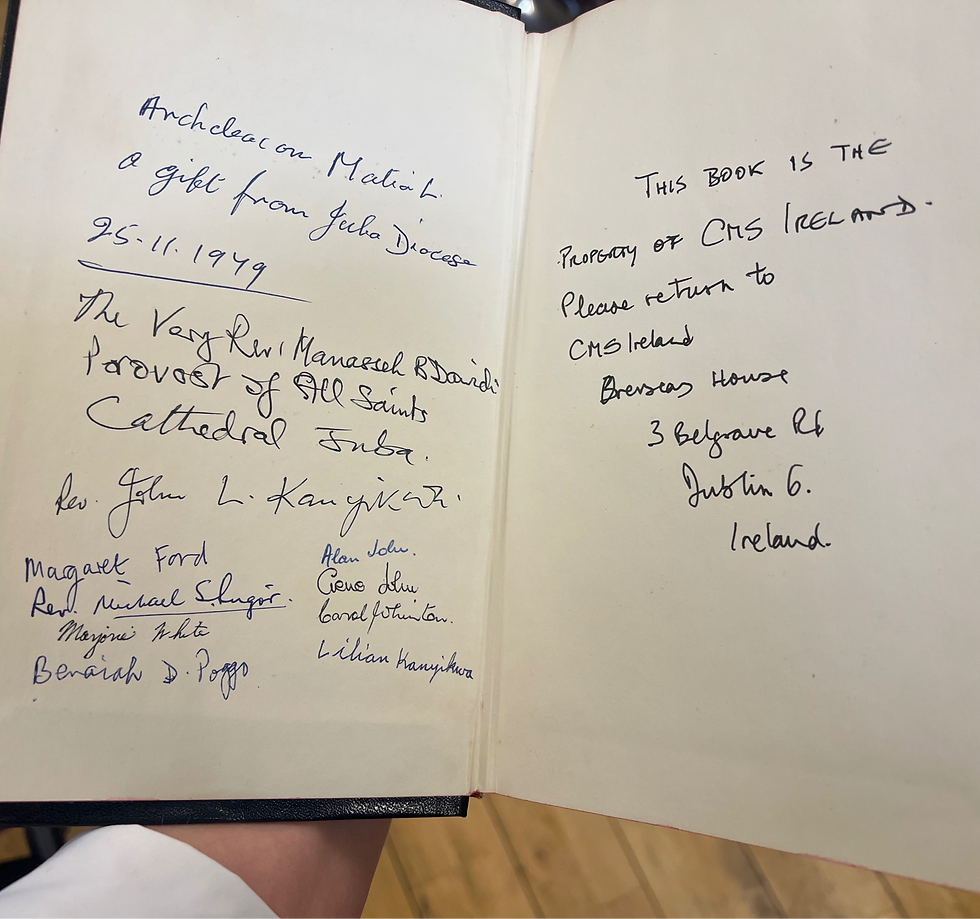 Archdeacon Matia L.
a gift from Juba Diocese
25-11.1979
The Very Rev. Manasseh B Dawidi
Provost of All Saints
Cathedral Juba.
Rev. John L. Kanyikwa.
Margaret Ford
Rev. Michael S. Lugör.
Marjorie White
Benaiah D. Poggo
Alan John.
John
Carol Johnston.
Lilian Kanyikwa
THIS BOOK IS THE
PROPERTY OF CMS IRELAND.
Please return to
CMS Ireland
Overseas House
3 Belgrave Rd
Dublin 6.
Ireland.